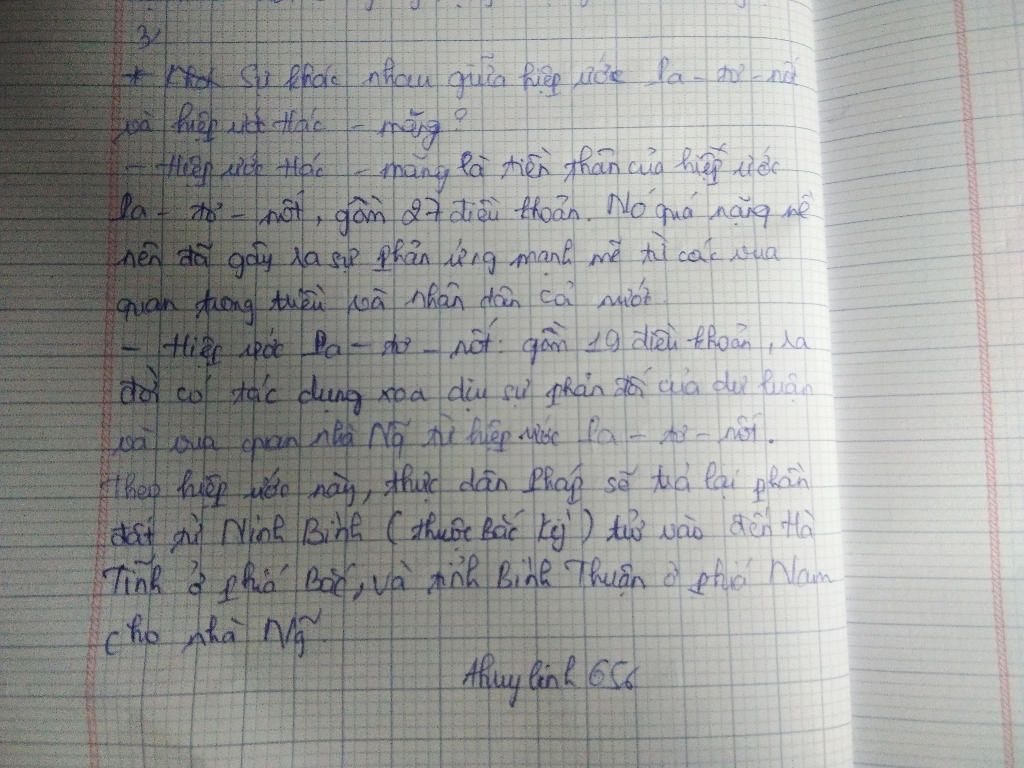 3/
* Khá Sự khác nhau giữa hiệp ước Pa - tơ - nốt
và hiệp ước Hác - măng?
- Hiệp ước Hác - măng là tiền thân của hiệp ước
Pa - tơ - nốt, gồm 27 điều khoản. Nó quá nặng nề
nên đã gây ra sự phản ứng mạnh mẽ từ các vua
quan trong triều và nhân dân cả nước.
- Hiệp ước Pa - tơ - nốt: gồm 19 điều khoản, ra
đời có tác dụng xoa dịu sự phản đối của dư luận
và vua quan nhà Ng~ từ hiệp ước Pa - tơ - nốt.
Theo hiệp ước này, thực dân Pháp sẽ trả lại phần
đất từ Ninh Bình (thuộc Bắc Kỳ) trở vào đến Hà
Tĩnh ở phía Bắc, và tỉnh Bình Thuận ở phía Nam
cho nhà Ng~.
thuylinh 656